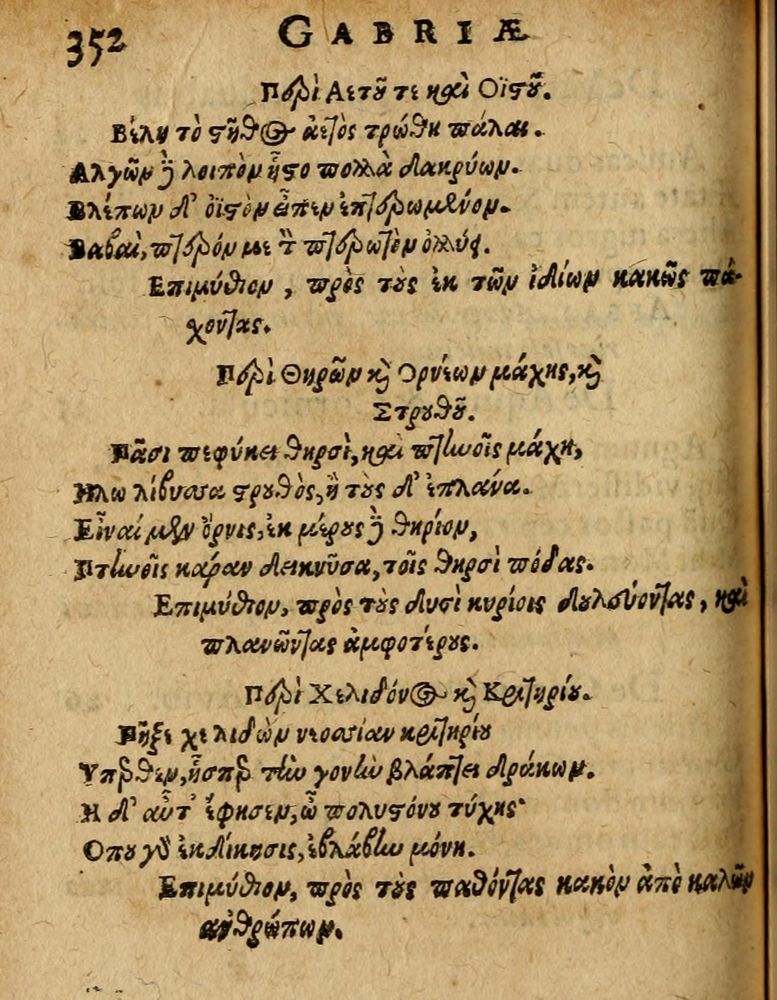 352 GABRIÆ
Περὶ Αετοῦ τε καὶ Οϊστοῦ.
Βέλει τὸ στῆθος ἀετὸς τρώθη πάλαι.
Αλγῶν δὲ λοιπὸν ἧστο πολλὰ δακρύων.
Βλέπων δ' ὀϊστὸν εἶπεν ἐπτερωμένον.
Βαβαὶ, πτερόν με τὸν πτερωτὸν ὀλλύει.
Επιμύθιον, πρὸς τοὺς ἐκ τῶν ἰδίων κακῶς πά-
χοντας.
Περὶ Θηρῶν καὶ Ορνέων μάχης, καὶ
Στρουθοῦ.
Πᾶσι πεφύκει θηρσὶ, καὶ πτηνοῖς μάχη,
Ηλω λίβυσσα στρουθὸς, ἡ τοὺς δ' ἐπλάνα.
Εἶναί μὲν ὄρνις, ἐκ μέρους δὲ θηρίον,
Πτηνοῖς κάραν δεικνῦσα, τοῖς θηρσὶ πόδας.
Επιμύθιον, πρὸς τοὺς δυσὶ κυρίοις δουλεύοντας, καὶ
πλανῶντας ἀμφοτέρους.
Περὶ Χελιδόνος καὶ Κριτηρίου.
Πῆξε χελιδὼν νεοσσίαν κριτηρίου
Υπερθεν, ἧσπερ τὴν γονὴν βλάπτει δράκων.
Η δ' αὖτ' ἔφησεν, ὦ πολυστόνου τύχης·
Οπου γὰρ ἐκδίκησις, ἐβλάβην μόνη.
Επιμύθιον, πρὸς τοὺς παθόντας κακὸν ἀπὸ καλῶν
ανθρώπων.